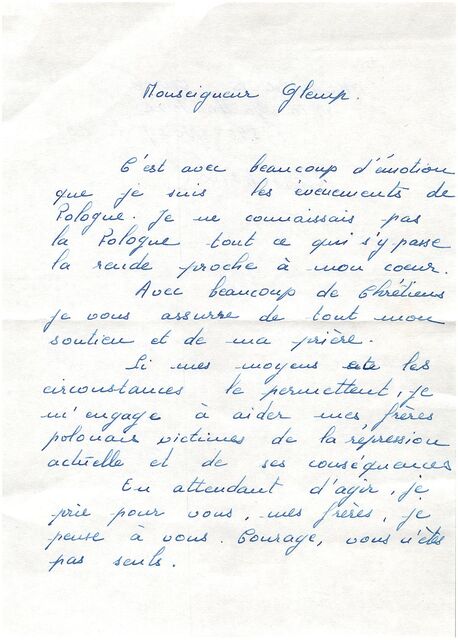 Monseigneur Glemp.
C'est avec beaucoup d'émotion
que je suis les événements de
Pologne. Je ne connaissais pas
la Pologne tout ce qui s'y passe
la rende proche à mon coeur.
Avec beaucoup de Chrétiens
je vous assurre de tout mon
soutien et de ma prière.
Si mes moyens et les
circonstances le permettent, je
m'engage à aider mes frères
polonais victimes de la repression
actuelle et de ses conséquences
En attendant d'agir, je
prie pour vous, mes frères, je
pense à vous. Courage, vous n'êtes
pas seuls.